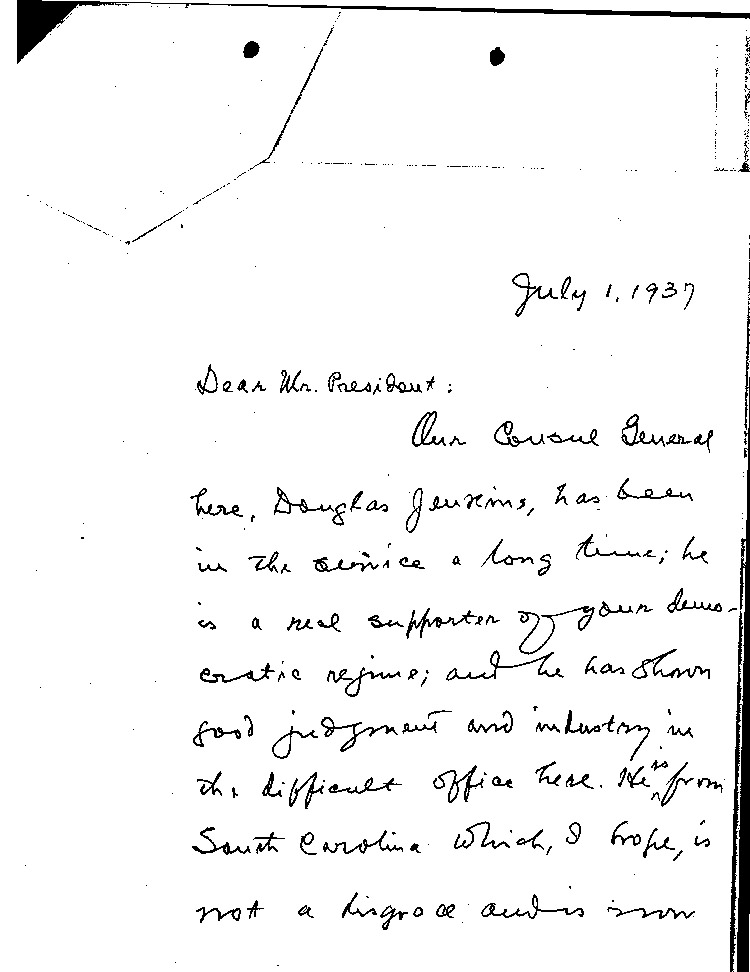 July 1, 1937
Dear Mr. President:
Our Consul General
here, Douglas Jenkins, has been
in the service a long time; he
is a real supporter of your demo-
cratic regime; and he has shown
good judgment and industry in
the difficult office here. He is from
South Carolina which, I hope, is
not a disgrace and is now